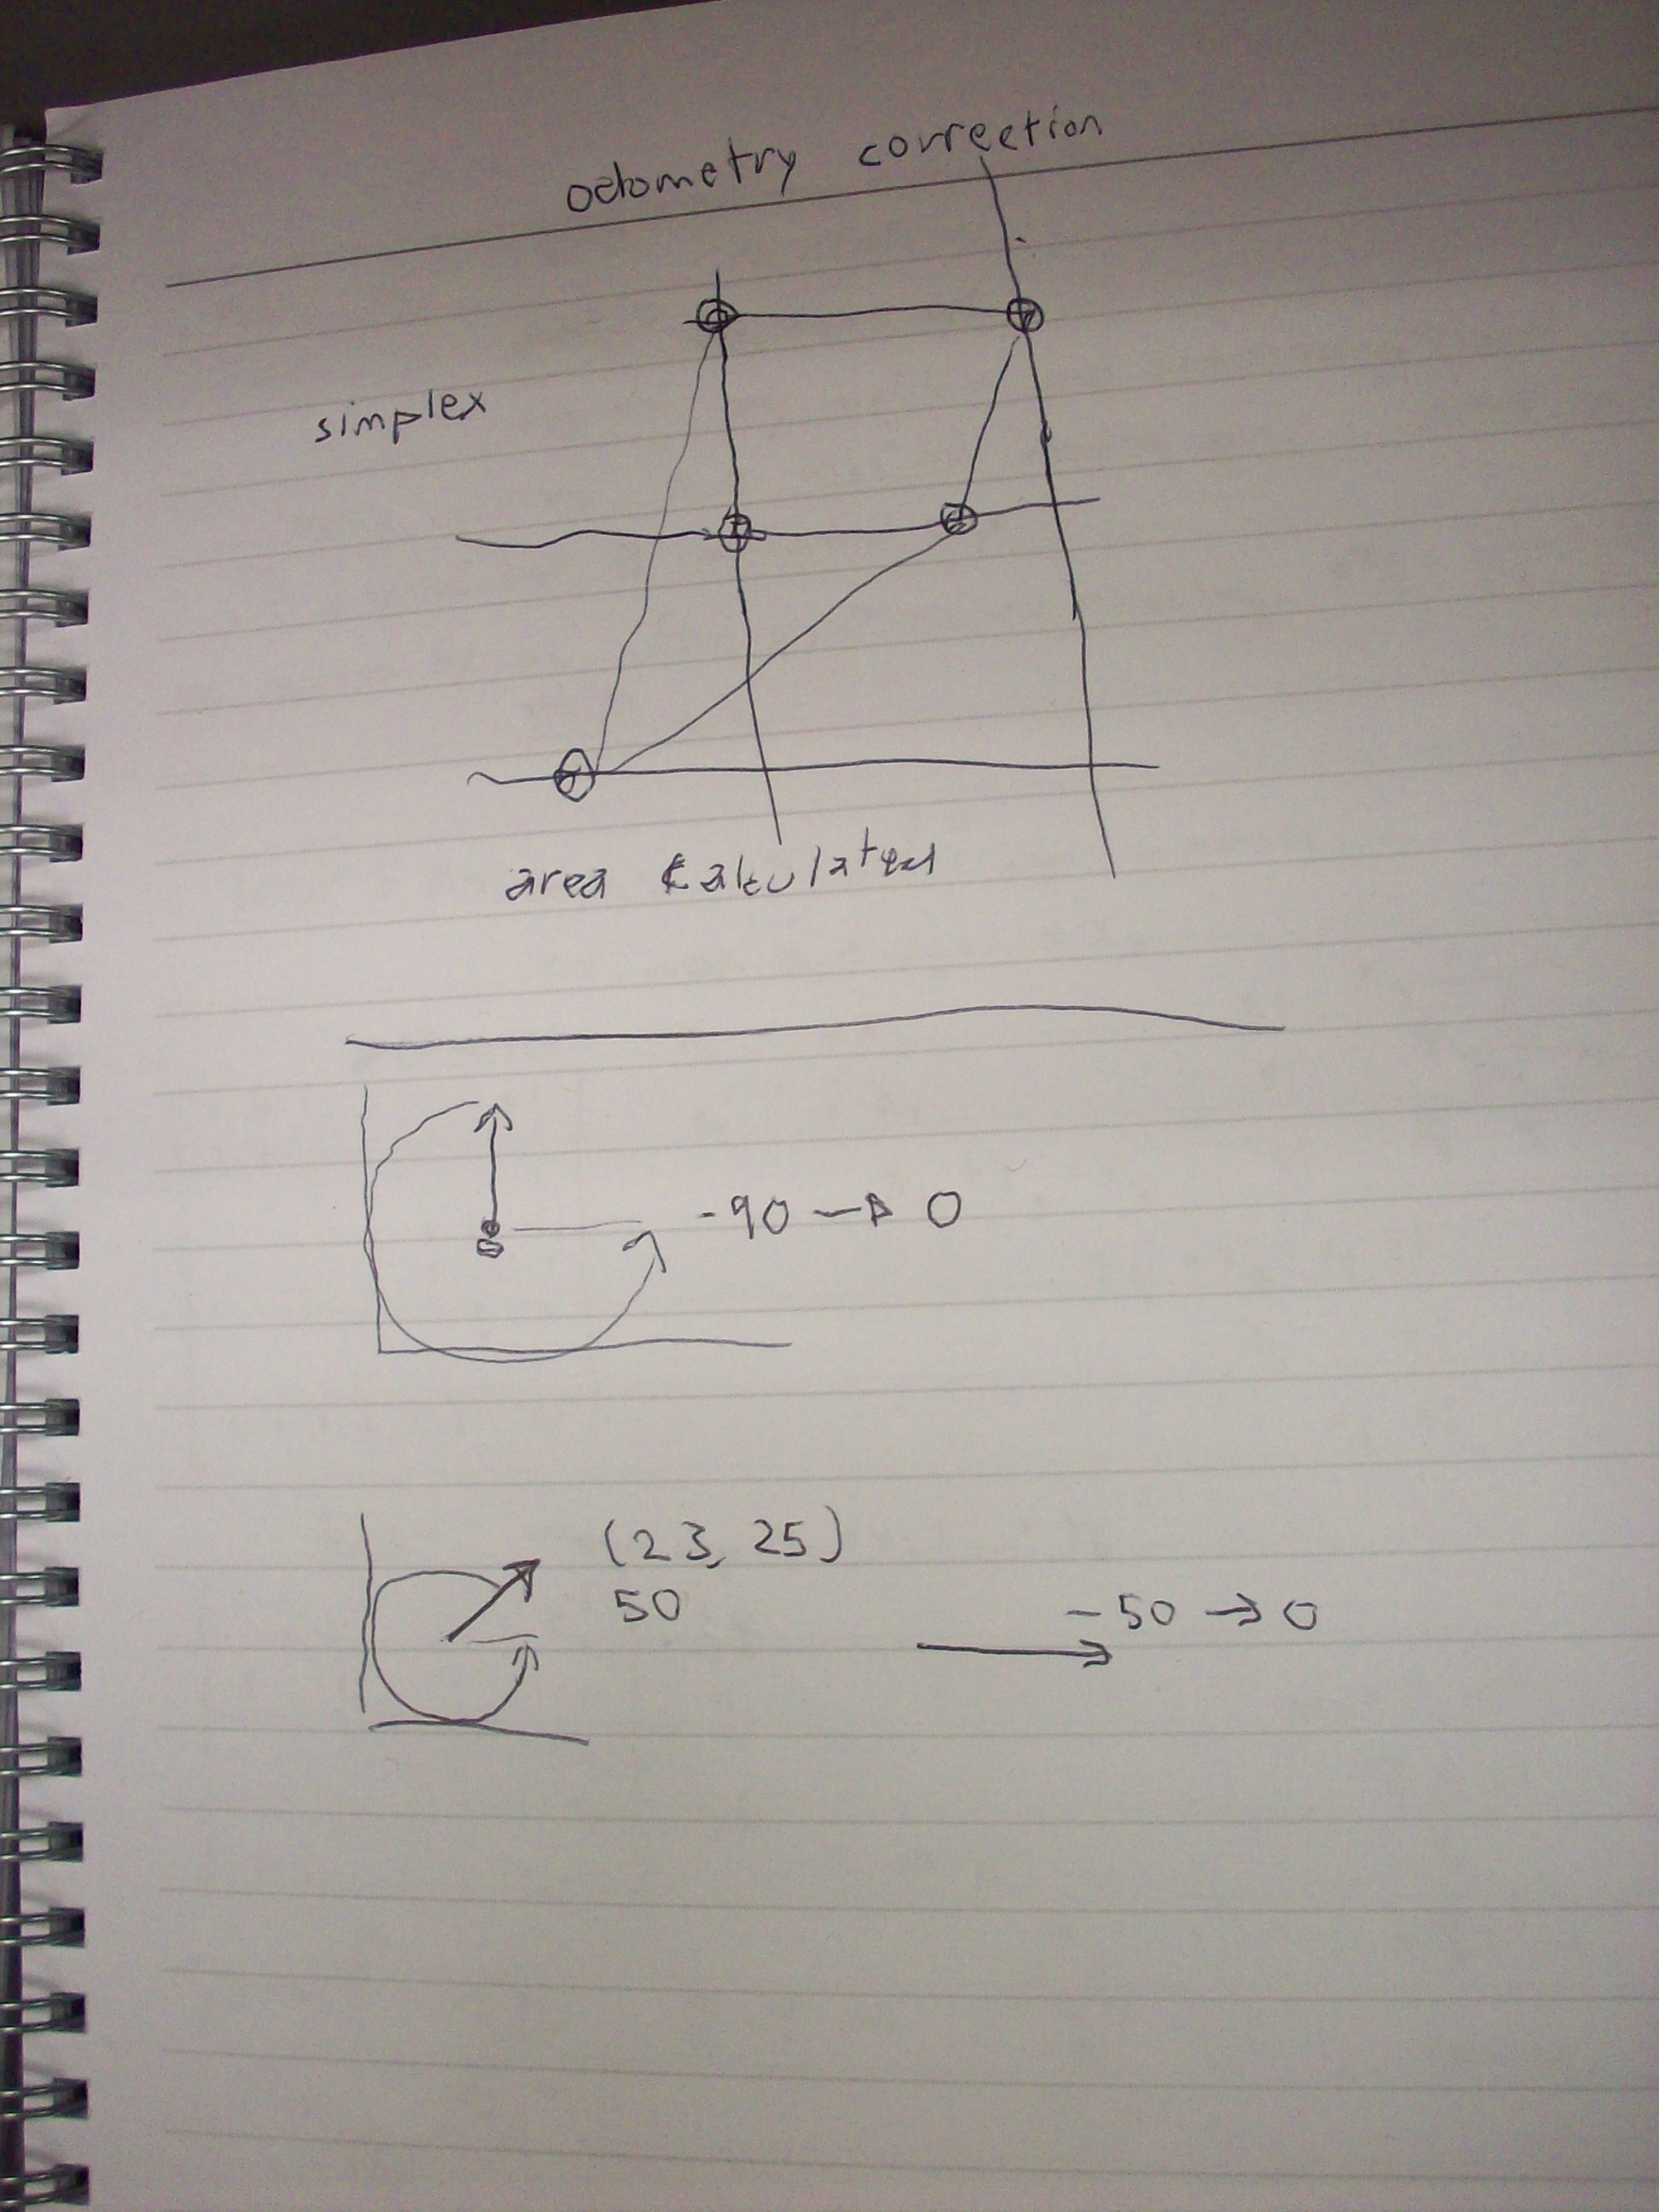 odometry correction
simplex
area calculated
-90 → 0
(23, 25)
50
-50 → 0